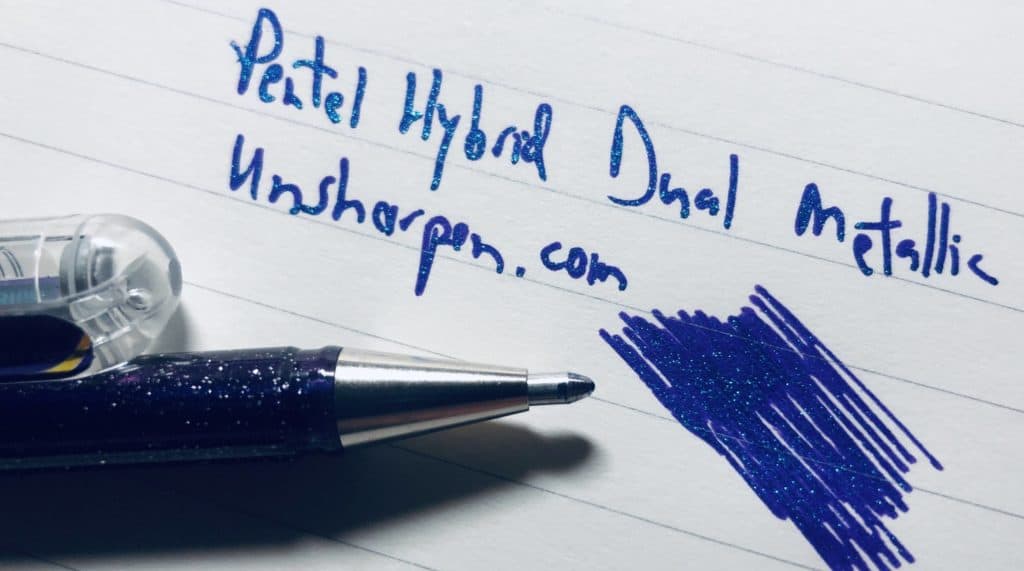 Pentel Hybrid Dual Metallic
Unsharpen.com